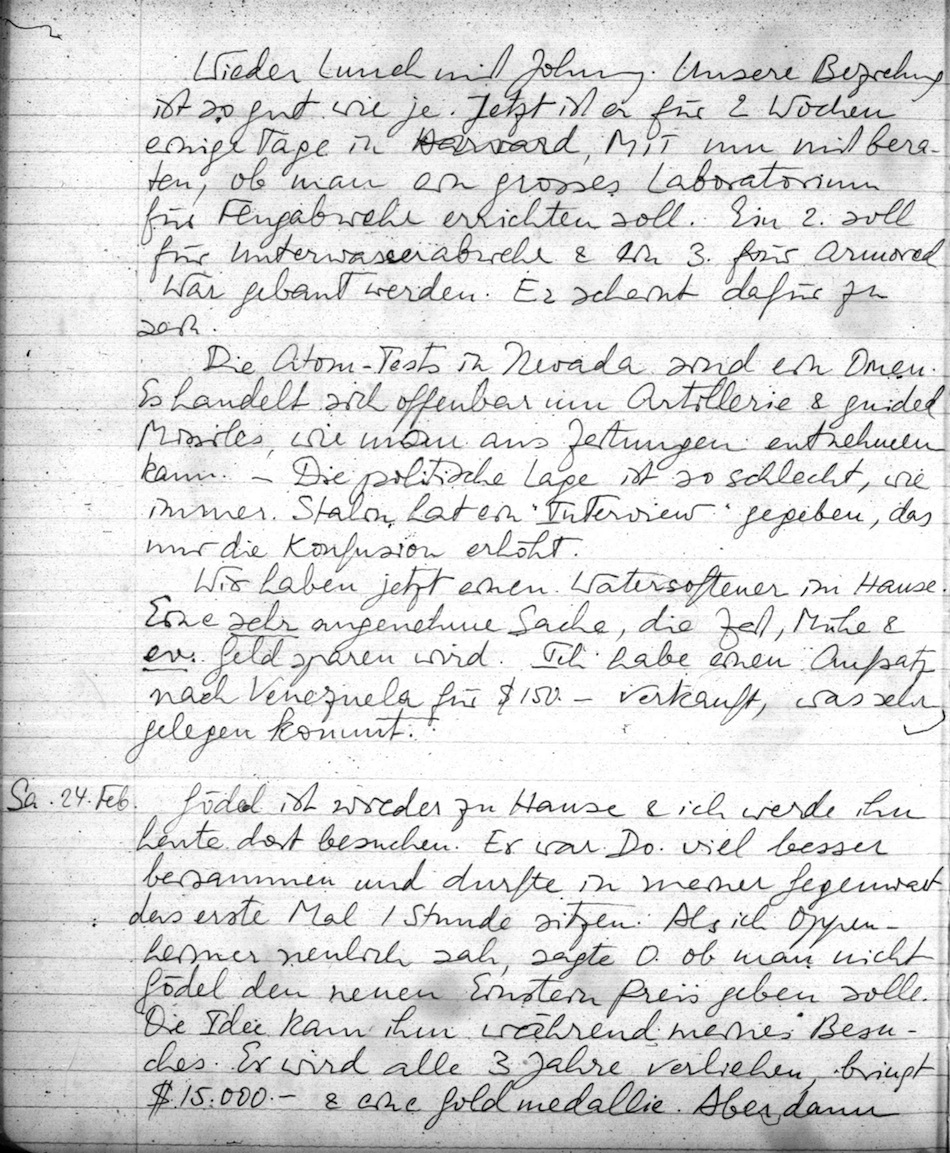 Wieder Lunch mit Johnny. Unsere Beziehung
ist so gut wie je. Jetzt ist er für 2 Wochen
einige Tage in Harvard, MIT um mit bera-
ten, ob man ein grosses Laboratorium
für Flugabwehr errichten soll. Ein 2. soll
für Unterwasserabwehr & ein 3. für armored
War gebaut werden. Er scheint dafür zu
sein.
Die Atom-Tests in Nevada sind ein Omen.
Es handelt sich offenbar um Artillerie & guided
Missiles, wie man aus Zeitungen entnehmen
kann. – Die politische Lage ist so schlecht, wie
immer. Stalin hat ein "Interview" gegeben, das
nur die Konfusion erhöht.
Wir haben jetzt einen Watersoftener im Hause.
Eine sehr angenehme Sache, die Zeit, Mühe &
ev. Geld sparen wird. Ich habe einen Aufsatz
nach Venezuela für $150.– verkauft, was sehr
gelegen kommt.
Sa. 24. Feb. Gödel ist wieder zu Hause & ich werde ihn
heute dort besuchen. Er war Do. viel besser
beisammen und durfte in meiner Gegenwart
das erste Mal 1 Stunde sitzen. Als ich Oppen-
heimer neulich sah, sagte O. ob man nicht
Gödel den neuen Einstein Preis geben solle.
Die Idee kam ihm während meines Besu-
ches. Er wird alle 3 Jahre verliehen, bringt
$15.000.– & eine Goldmedallie. Aber dann